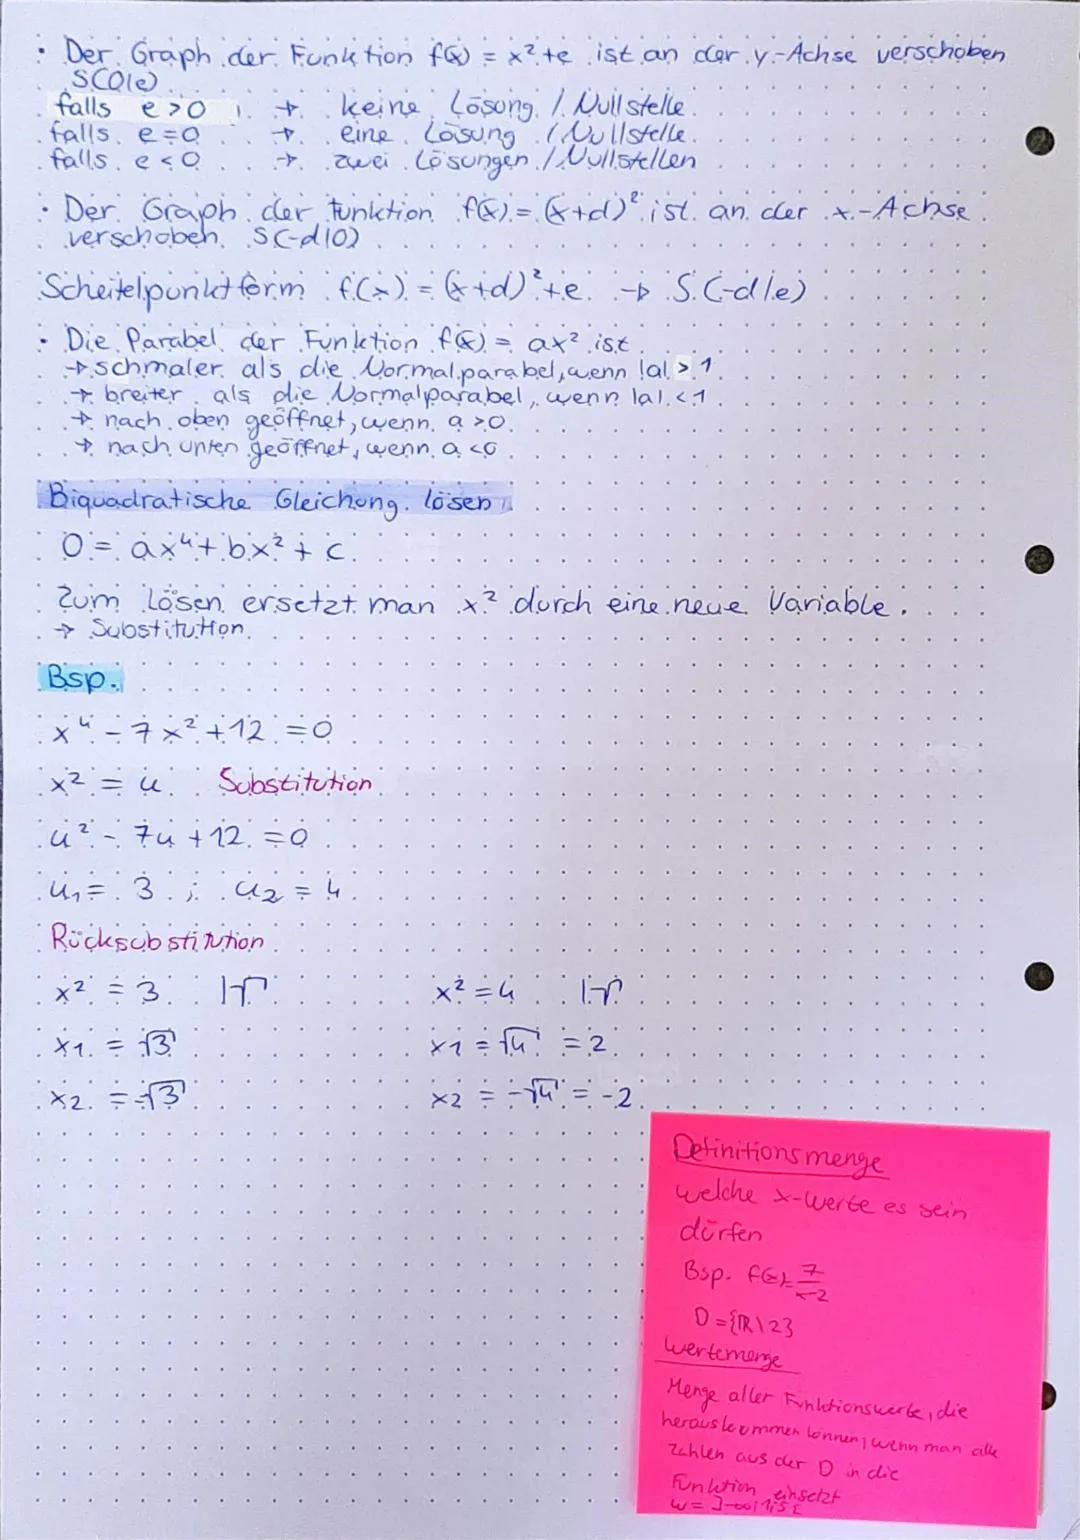 • Der Graph der Funktion f(x) = x² + e ist an der y-Achse verschoben
S(0|e)
falls e > 0 → keine Lösung / Nullstelle
falls e = 0 → eine Lösung / Nullstelle
falls e < 0 → zwei Lösungen / Nullstellen
• Der Graph der Funktion f(x) = (x+d)² ist an der x-Achse
verschoben S(-d|0)
Scheitelpunktform f(x) = (x+d)² + e → S(-d|e)
• Die Parabel der Funktion f(x) = ax² ist
→ schmaler als die Normalparabel, wenn |a| > 1
→ breiter als die Normalparabel, wenn |a| < 1
→ nach oben geöffnet, wenn a > 0
→ nach unten geöffnet, wenn a < 0
Biquadratische Gleichung lösen
0 = ax⁴ + bx² + c
Zum Lösen ersetzt man x² durch eine neue Variable.
→ Substitution
Bsp.
x⁴ - 7x² + 12 = 0
x² = u Substitution
u² - 7u + 12 = 0
u₁ = 3 ; u₂ = 4
Rücksubstitution
x² = 3 |√ x² = 4 |√
x1 = √3 x1 = √4 = 2
x2 = -√3 x2 = -√4 = -2
Definitionsmenge
welche x-Werte es sein
dürfen
Bsp. f(x) = 7/(x-2)
D = {ℝ\2}
Wertemenge
Menge aller Funktionswerte, die
herauskommen können, wenn man alle
Zahlen aus der D in die
Funktion einsetzt
W = ]-∞; 1,5[